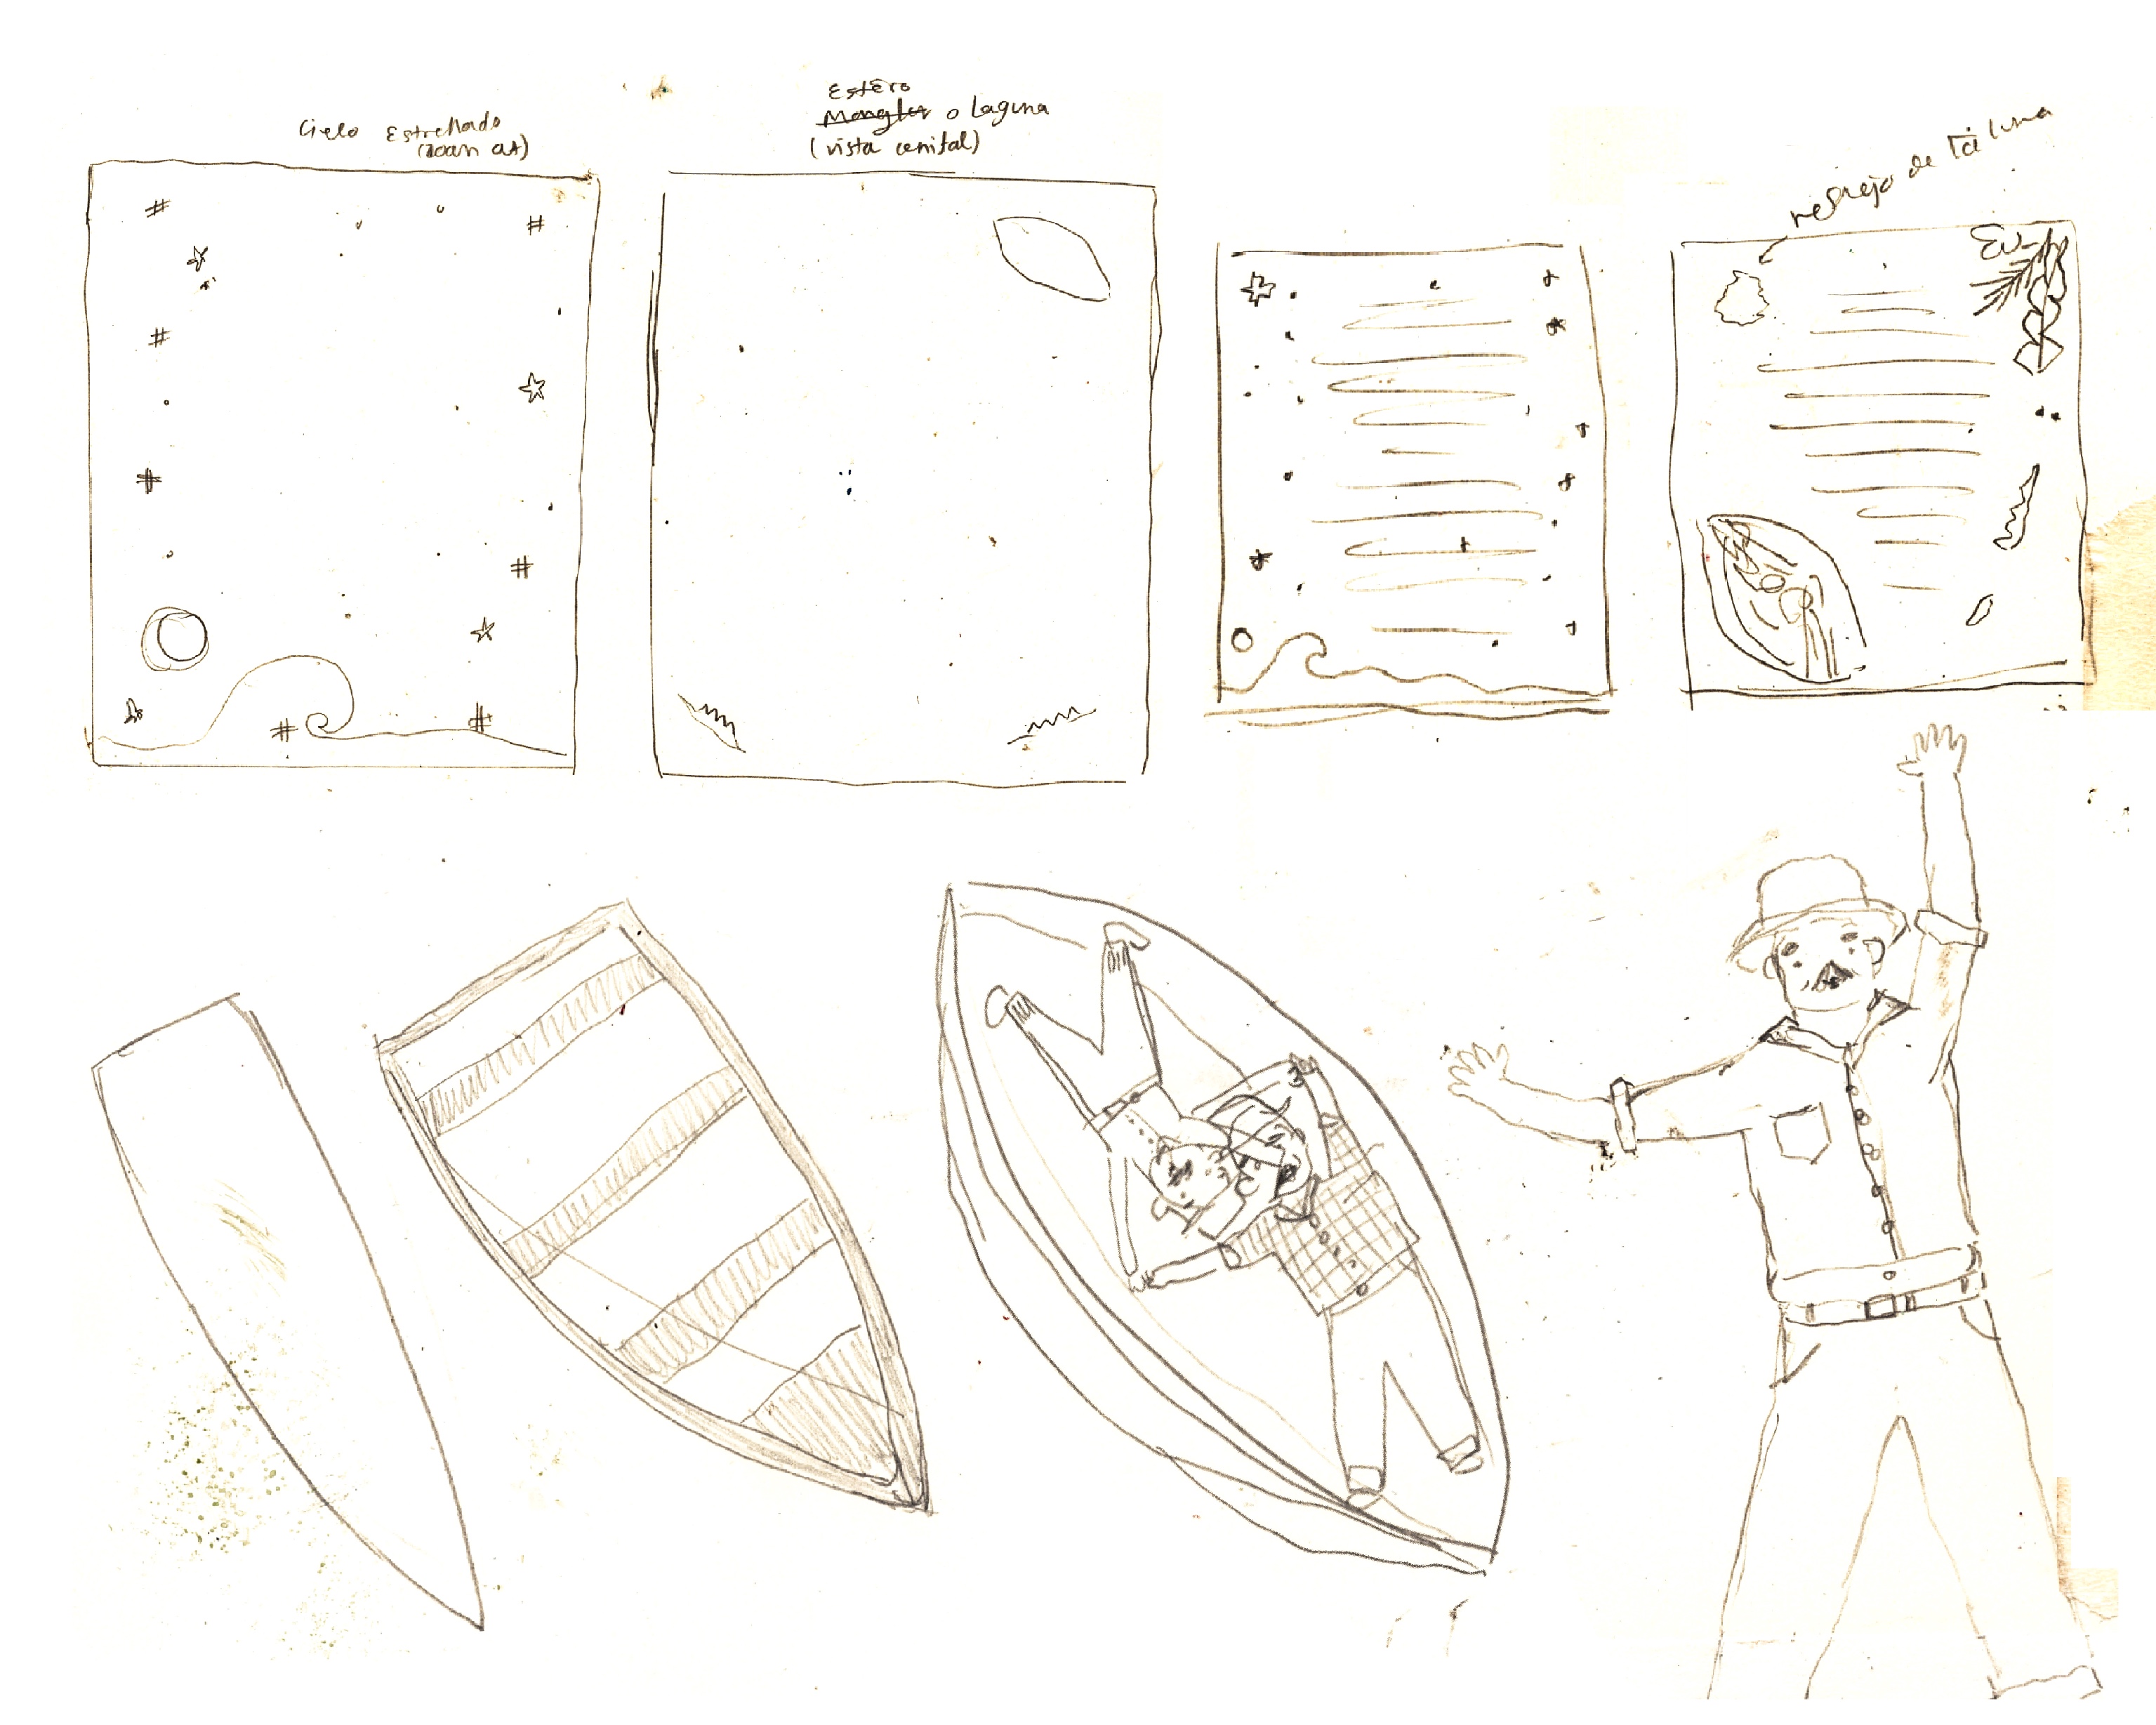 Cielo Estrellado
(zoom out)
Estero
Manglar o laguna
(vista cenital)
reflejo de la luna